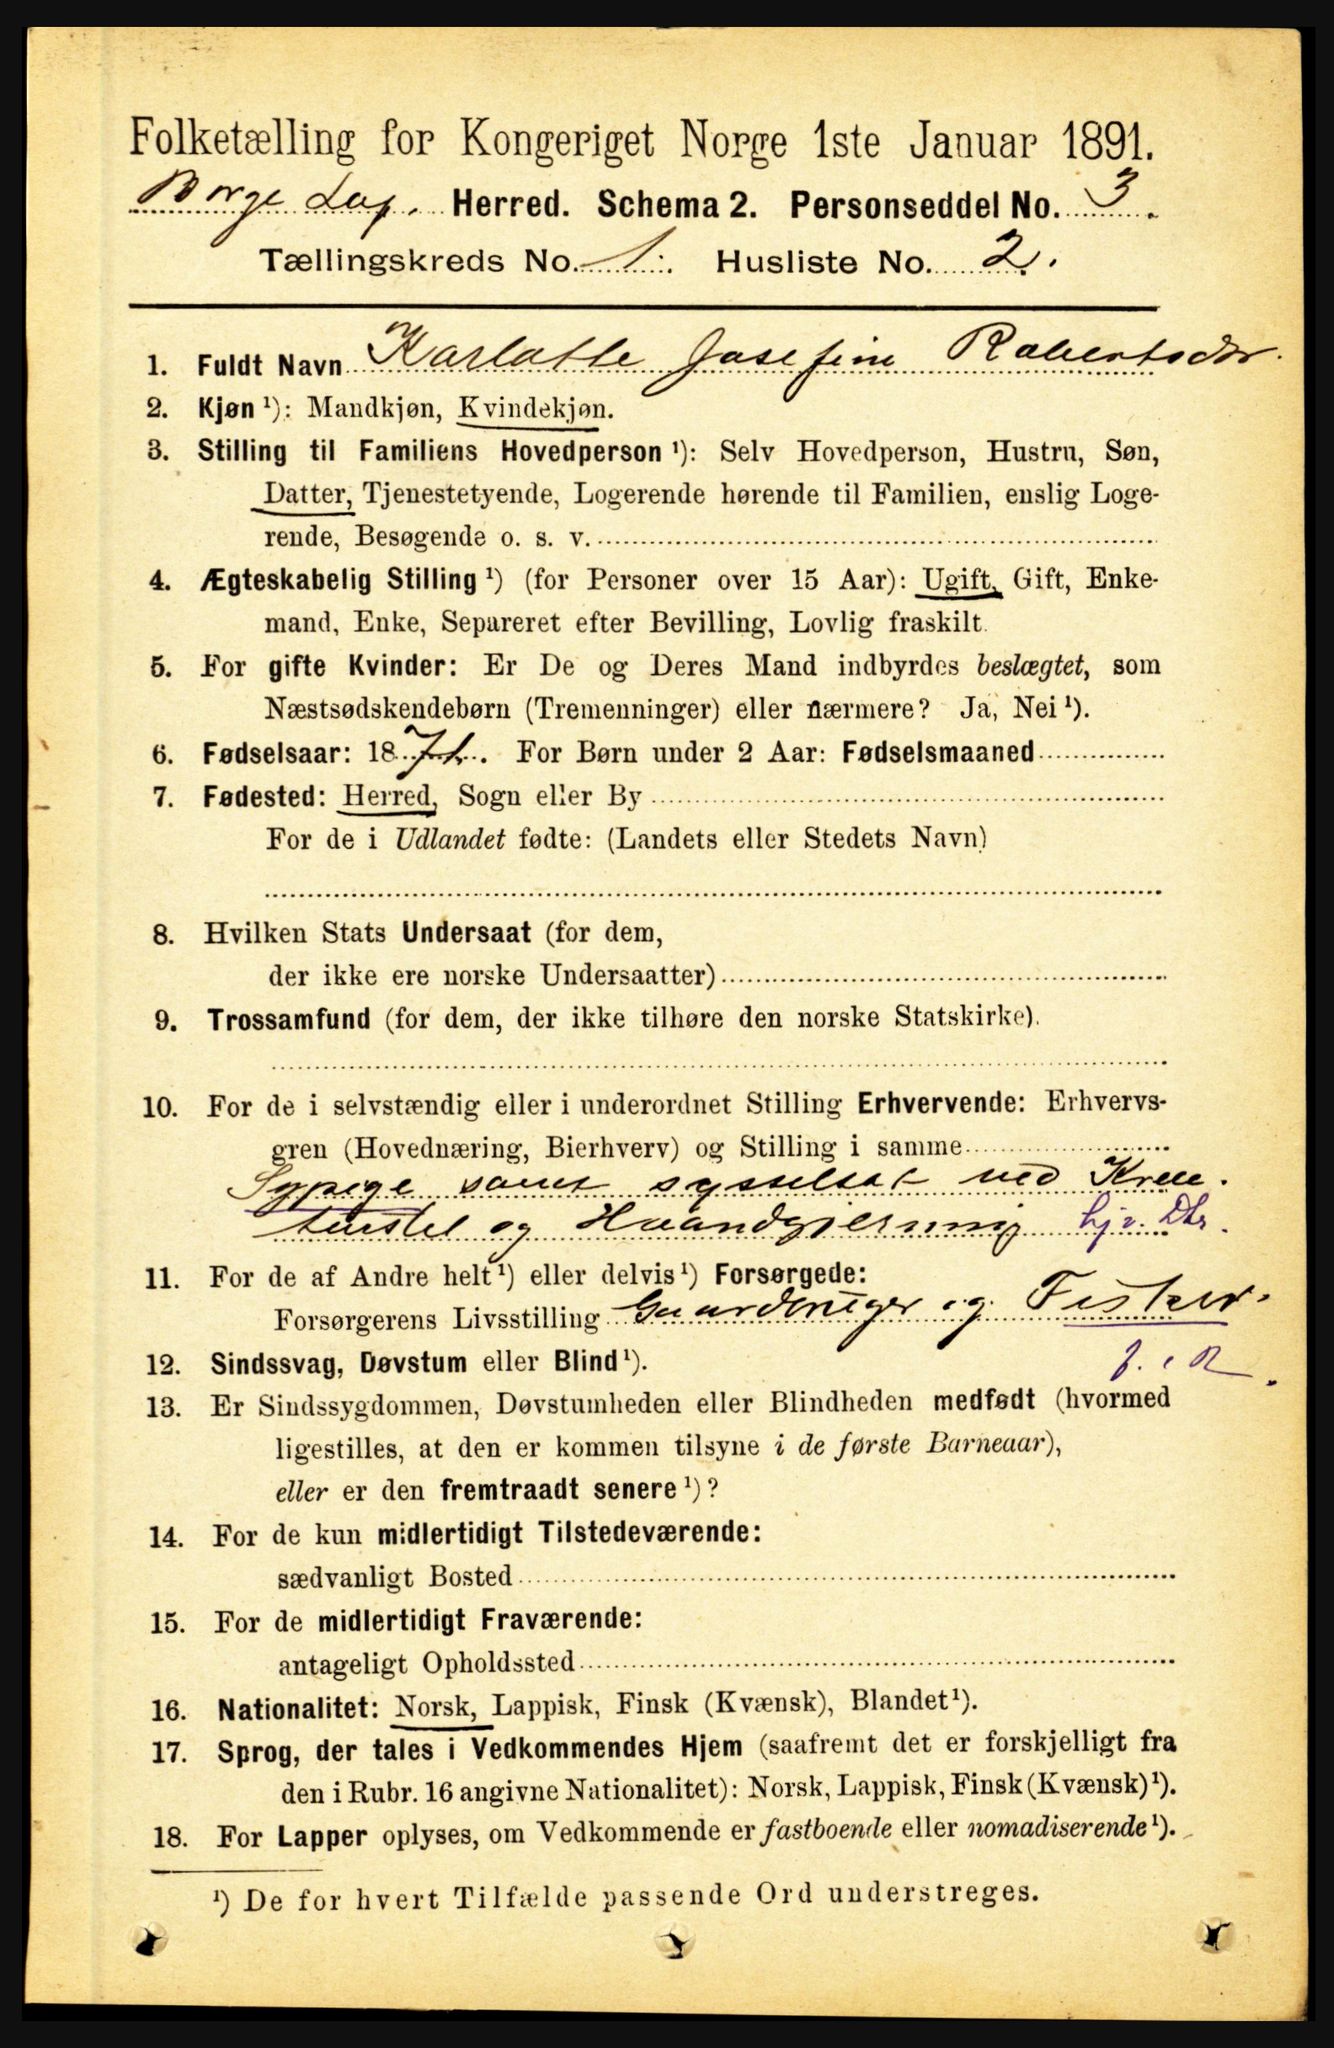 Folketælling for Kongeriget Norge 1ste Januar 1891.
Borge Lof. Herred. Schema 2. Personseddel No. 3.
Tællingskreds No. 1. Husliste No. 2.
1. Fuldt Navn Karlotte Josefine Robertsdtr.
2. Kjøn ¹): Mandkjøn, Kvindekjøn.
3. Stilling til Familiens Hovedperson ¹): Selv Hovedperson, Hustru, Søn,
Datter, Tjenestetyende, Logerende hørende til Familien, enslig Loge-
rende, Besøgende o. s. v.
4. Ægteskabelig Stilling ¹) (for Personer over 15 Aar): Ugift, Gift, Enke-
mand, Enke, Separeret efter Bevilling, Lovlig fraskilt.
5. For gifte Kvinder: Er De og Deres Mand indbyrdes beslægtet, som
Næstsødskendebørn (Tremenninger) eller nærmere? Ja, Nei ¹).
6. Fødselsaar: 187. For Børn under 2 Aar: Fødselsmaaned
7. Fødested: Herred, Sogn eller By
For de i Udlandet fødte: (Landets eller Stedets Navn)
8. Hvilken Stats Undersaat (for dem,
der ikke ere norske Undersaatter)
9. Trossamfund (for dem, der ikke tilhøre den norske Statskirke).
10. For de i selvstændig eller i underordnet Stilling Erhvervende: Erhvervs-
gren (Hovednæring, Bierhverv) og Stilling i samme
Sypige samt sysselsat ved Krea-
turstel og Haandgjerning hjv. Dtr.
11. For de af Andre helt ¹) eller delvis ¹) Forsørgede:
Forsørgerens Livsstilling Gaardbruger og Fisker.
12. Sindssvag, Døvstum eller Blind ¹).
13. Er Sindssygdommen, Døvstumheden eller Blindheden medfødt (hvormed
ligestilles, at den er kommen tilsyne i de første Barneaar),
eller er den fremtraadt senere ¹)?
14. For de kun midlertidigt Tilstedeværende:
sædvanligt Bosted
15. For de midlertidigt Fraværende:
antageligt Opholdssted
16. Nationalitet: Norsk, Lappisk, Finsk (Kvænsk), Blandet ¹).
17. Sprog, der tales i Vedkommendes Hjem (saafremt det er forskjelligt fra
den i Rubr. 16 angivne Nationalitet): Norsk, Lappisk, Finsk (Kvænsk) ¹).
18. For Lapper oplyses, om Vedkommende er fastboende eller nomadiserende ¹).
¹) De for hvert Tilfælde passende Ord understreges.